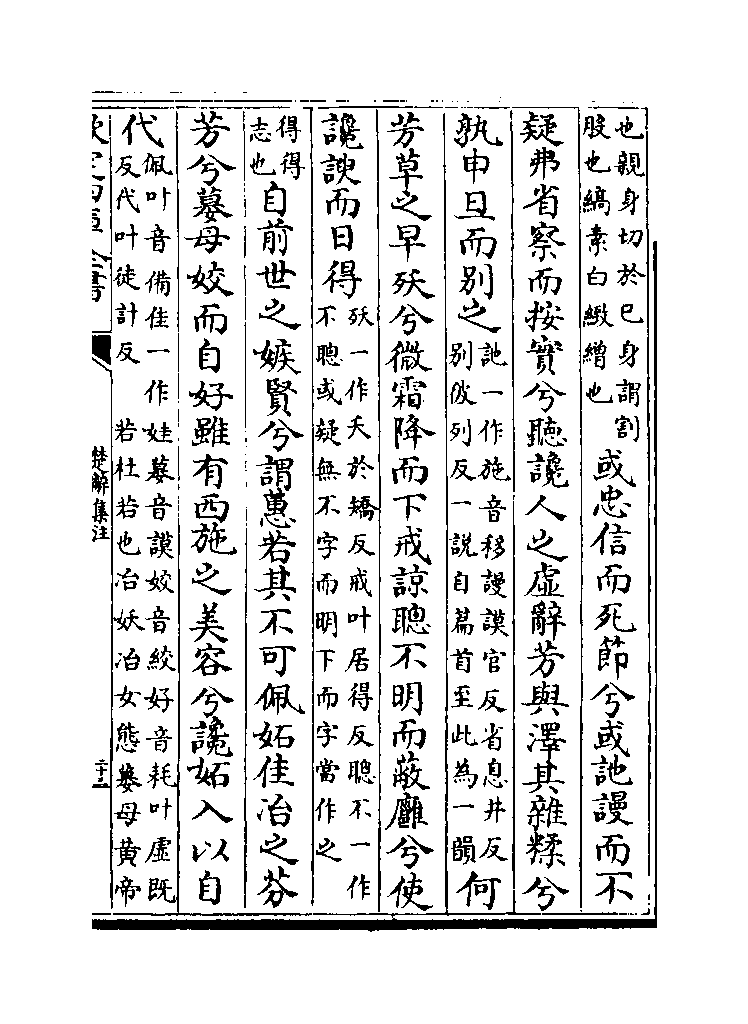 也親身切於巳身謂割
股也縞素白緻繒也
或忠信而死節兮或訑謾而不
疑弗省察而按實兮聽讒人之虛辭芳與澤其雜糅兮
孰申旦而别之
訑一作施音移謾謨官反省息井反
别彼列反一説自篇首至此為一韻
何
芳草之早殀兮微霜降而下戒諒聰不明而蔽廱兮使
讒諛而日得
殀一作夭於矯反戒叶居得反聰不一作
不聰或疑無不字而明下而字當作之
得得
志也
自前世之嫉賢兮謂蕙若其不可佩妬佳冶之芬
芳兮嫫母姣而自好雖有西施之美容兮讒妬入以自
代
佩叶音備佳一作娃嫫音謨姣音絞好音耗叶虛既
反代叶徒計反 若杜若也冶妖冶女態嫫母黄帝
欽定四庫全書
楚辭集注
二十三